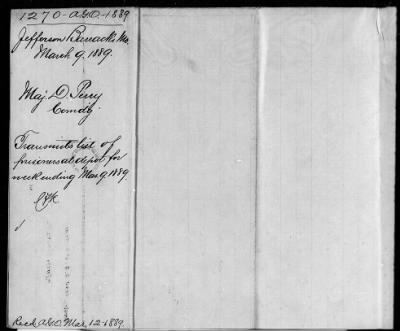 1270-A.G.O-1889
Jefferson Barracks Mo.
March 9. 1889.
Maj. D. Perry
Comdg.
Transmits list of
prisoners at depot for
week ending Mar 9. 1889.
Recd A.G.O. Mar. 12-1889.